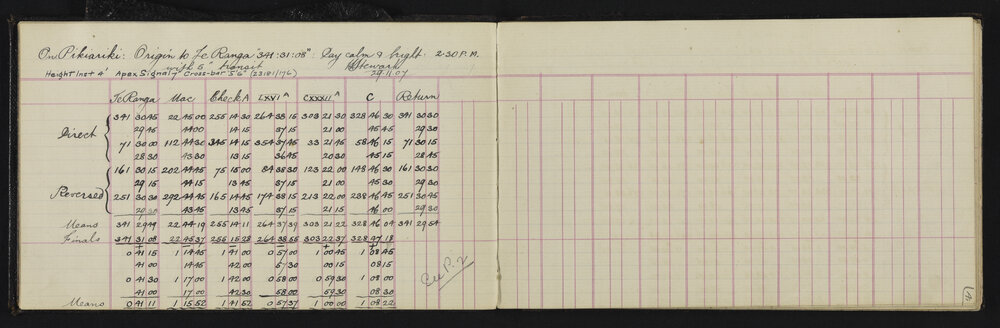 On Pikiariki: Origin to Te Ranga "341:31:08" Day calm & bright. 2.30 P.M.
with 5" transit HStewart
Height Inst 4' Apex Signal 7' Cross-bar 5'6" (23181/176) 29.11.07
Te Ranga Mac Check A LXVI A CXXXII A C Return
341 30 45 22 45 00 255 14 30 264 38 15 303 21 30 328 46 30 341 30 30
29 45 44 00 14 15 37 15 21 00 45 45 29 30
Direct
71 30 00 112 44 30 345 14 15 354 37 45 33 21 45 58 46 15 71 30 15
28 30 43 30 13 15 36 45 20 30 45 15 28 45
161 30 15 202 44 45 75 15 00 84 38 30 123 22 00 148 46 30 161 30 30
29 15 44 15 13 45 37 15 21 00 45 30 29 30
Reversed
251 30 30 292 44 45 165 14 45 174 38 15 213 22 00 238 46 45 251 30 45
29 30 43 45 13 45 37 15 21 15 46 00 29 30
Means 341 29 49 22 44 19 255 14 11 264 37 39 303 21 22 328 46 04 341 29 54
Finals 341 31 08 22 45 37 255 15 28 264 38 55 303 22 37 328 47 18
0 41 15 1 14 45 1 41 00 0 57 00 1 00 45 1 08 45
41 00 14 45 42 00 57 30 00 15 08 15
0 41 30 1 17 00 1 42 00 0 58 00 0 59 30 1 08 00
41 00 17 00 42 30 58 00 59 30 08 30
Means 0 41 11 1 15 52 1 41 52 0 57 37 1 00 00 1 08 22
See P. 2